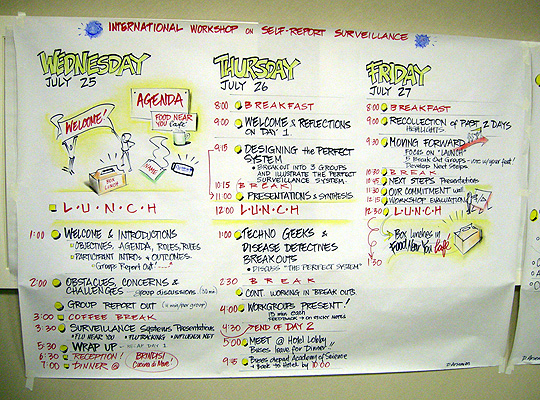 INTERNATIONAL WORKSHOP ON SELF-REPORT SURVEILLANCE
WEDNESDAY
JULY 25
WELCOME!
AGENDA
FOOD NEAR
YOU Café
BOX
LUNCH
NAME
LUNCH
1:00 WELCOME & INTRODUCTIONS
OBJECTIVES, AGENDA, ROLES, RULES
PARTICIPANT INTROS & OUTCOMES
Group Report Out
2:00 OBSTACLES, CONCERNS &
CHALLENGES GROUP DISCUSSIONS
GROUP REPORT OUT
3:00 COFFEE BREAK
3:30 SURVEILLANCE SYSTEMS Presentations
FLU NEAR YOU FLUTRACKING INFLUENZA NET
5:30 WRAP UP RECAP DAY 1
6:30 RECEPTION!
7:00 DINNER @
BRINDISI
Cucina di Mare!
THURSDAY
JULY 26
8:00 BREAKFAST
9:00 WELCOME & REFLECTIONS
ON DAY 1
9:15 DESIGNING the PERFECT
SYSTEM
BREAKOUT INTO 3 GROUPS
AND ILLUSTRATE THE PERFECT
SURVEILLANCE SYSTEM
10:15 BREAK
11:00 PRESENTATIONS & SYNTHESIS
12:00 LUNCH
1:00 TECHNO GEEKS &
DISEASE DETECTIVES
BREAKOUTS
DISCUSS "THE PERFECT SYSTEM"
2:30 BREAK
CONT. WORKING IN BREAK OUTS
4:00 WORKGROUPS PRESENT!
15 min each
FEEDBACK ON STICKY NOTES
4:30 END OF DAY 2
5:00 MEET @ Hotel Lobby
Buses leave for Dinner
Buses depart Academy of Science
& back to Hotel by 10:00
FRIDAY
JULY 27
8:00 BREAKFAST
9:00 RECOLLECTION OF PAST 2 DAYS
HIGHLIGHTS
9:30 MOVING FORWARD
FOCUS ON "LAUNCH"
Break Out Groups
Develop Next Steps
10:30 BREAK
10:45 NEXT STEPS Presentations
11:30 OUR COMMITMENT
12:15 WORKSHOP EVALUATION
12:30 LUNCH
Box lunches in
Food Near You Café
1:30